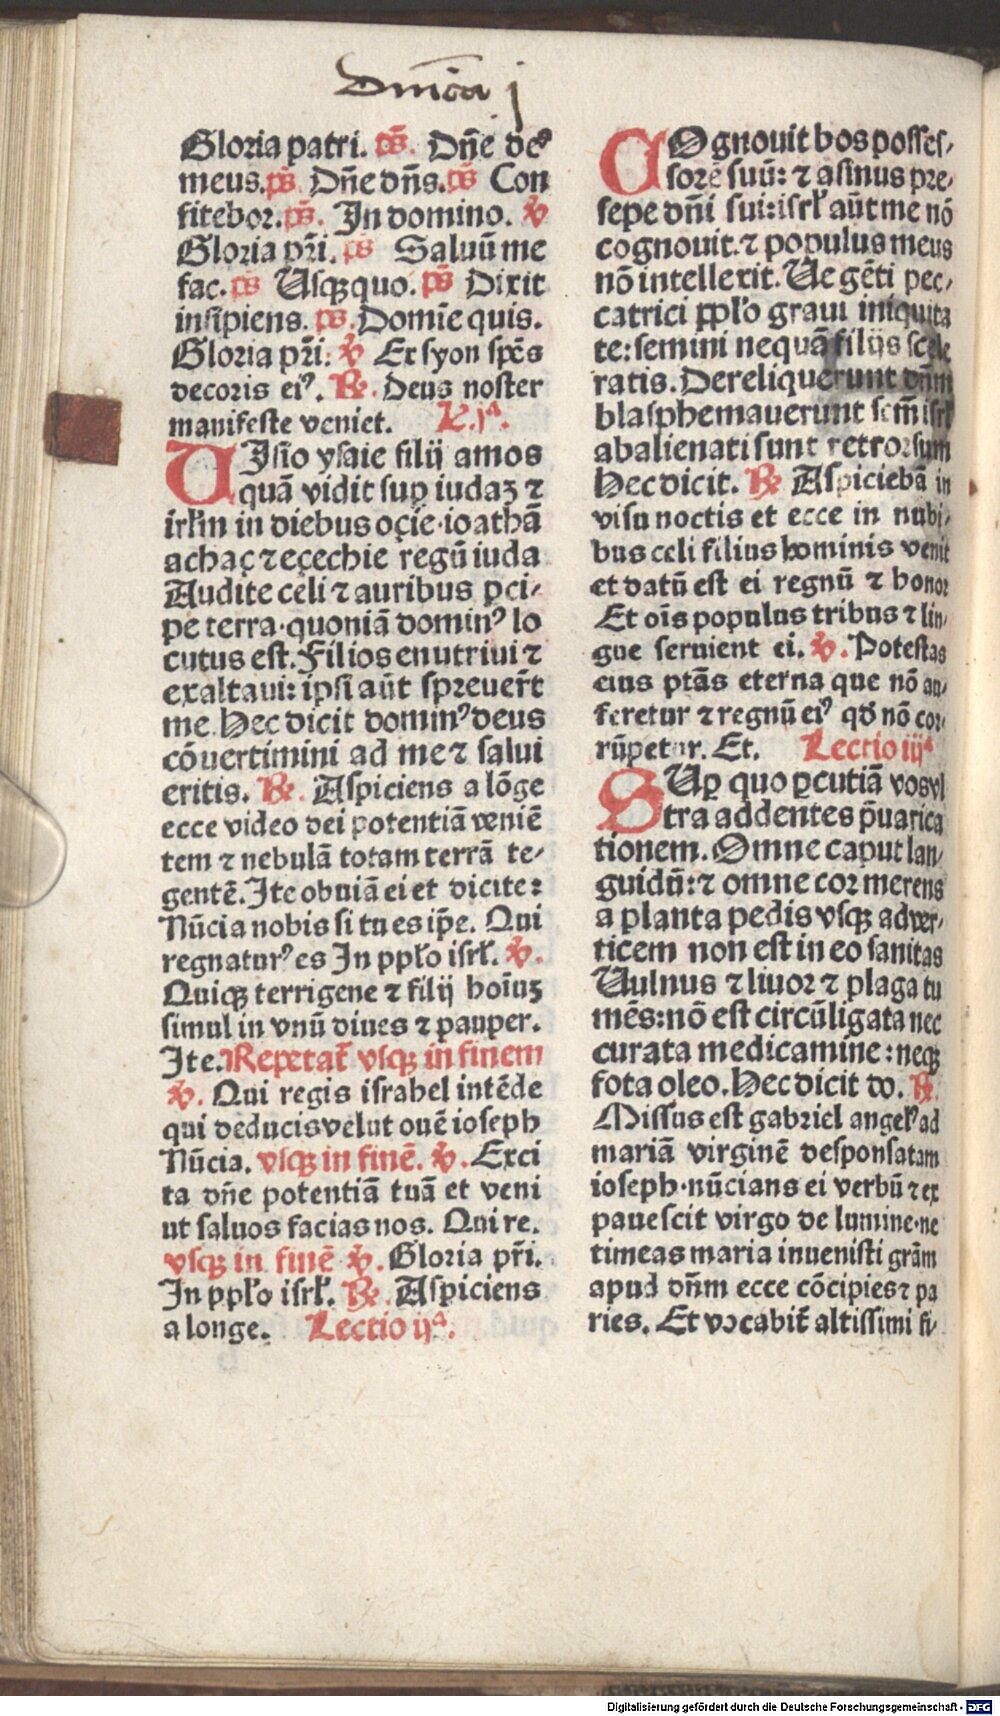 Dm̄ica j
Gloria patri. p̄s. Dn̄e deꝰ
meus. p̄s Dn̄e dn̄s. p̄s Con
fitebor. p̄s. In domino. ℣
Gloria pr̄i. p̄s Saluū me
fac. p̄s Usqꝫ quo. p̄s Dixit
insipiens. p̄s. Domīe quis.
Gloria pr̄i. ℣ Ex syon spēs
decoris eiꝰ. ℟. Deus noster
manifeste veniet. L. jª.
UIsio ysaie filij amos
quā vidit suꝑ iudaꝫ ⁊
irłm in diebus oçie·ioathā
achaç ⁊ eçechie regū iuda
Audite celi ⁊ auribus ꝑci⸗
pe terra·quoniā dominꝰ lo
cutus est. Filios enutriui ⁊
exaltaui: ipsi aūt spreuer̄t
me. Hec dicit dominꝰ deus
cōuertimini ad me ⁊ salui
eritis. ℟. Aspiciens a lōge
ecce video dei potentiā veniē
tem ⁊ nebulā totam terrā te⸗
gentē. Ite obuiā ei et dicite:
Nūcia nobis si tu es ip̄e. Qui
regnaturꝰ es In ppło isrł. ℣.
Quiqꝫ terrigene ⁊ filij hoīuꝫ
simul in vnū diues ⁊ pauper.
Ite. Repetat̄ vsqꝫ in finem
℣. Qui regis israhel intēde
qui deducis velut ouē ioseph
Nūcia. vsqꝫ in finē. ℣. Exci
ta dn̄e potentiā tuā et veni
ut saluos facias nos. Qui re.
vsqꝫ in finē ℣. Gloria pr̄i.
In ppło isrł. ℟. Aspiciens
a longe. Lectio ijª.
COgnouit bos posses⸗
sorē suū: ⁊ asinus pre⸗
sepe dn̄i sui: isrł aūt me nō
cognouit. ⁊ populus meus
nō intellexit. Ue gēti pec⸗
catrici ppło graui iniquita
te: semini nequā filijs scele
ratis. Dereliquerunt dn̄m
blasphemauerunt scm̄ isrł
abalienati sunt retrorsum
Hec dicit. ℟ Aspiciebā in
visu noctis et ecce in nubi⸗
bus celi filius hominis venit
et datū est ei regnū ⁊ honor
Et oīs populus tribus ⁊ lin⸗
gue seruient ei. ℣. Potestas
eius ptās eterna que nō au⸗
feretur ⁊ regnū eiꝰ qd̄ nō cor⸗
rūpetur. Et. Lectio iijª
SUꝑ quo ꝑcutiā vos vl
tra addentes p̄uarica
tionem. Omne caput lan⸗
guidū: ⁊ omne cor merens
a planta pedis vsqꝫ ad ver⸗
ticem non est in eo sanitas
Uulnus ⁊ liuor ⁊ plaga tu
mēs: nō est circūligata nec
curata medicamine: neqꝫ
fota oleo. Hec dicit do. ℟.
Missus est gabriel angelꝰ ad
mariā virginē desponsatam
ioseph·nūcians ei verbū ⁊ ex
pauescit virgo de lumine·ne
timeas maria inuenisti grām
apud dn̄m ecce cōcipies ⁊ pa
ries. Et vocabit̄ altissimi fi⸗
Digitalisierung gefördert durch die Deutsche Forschungsgemeinschaft - DFG